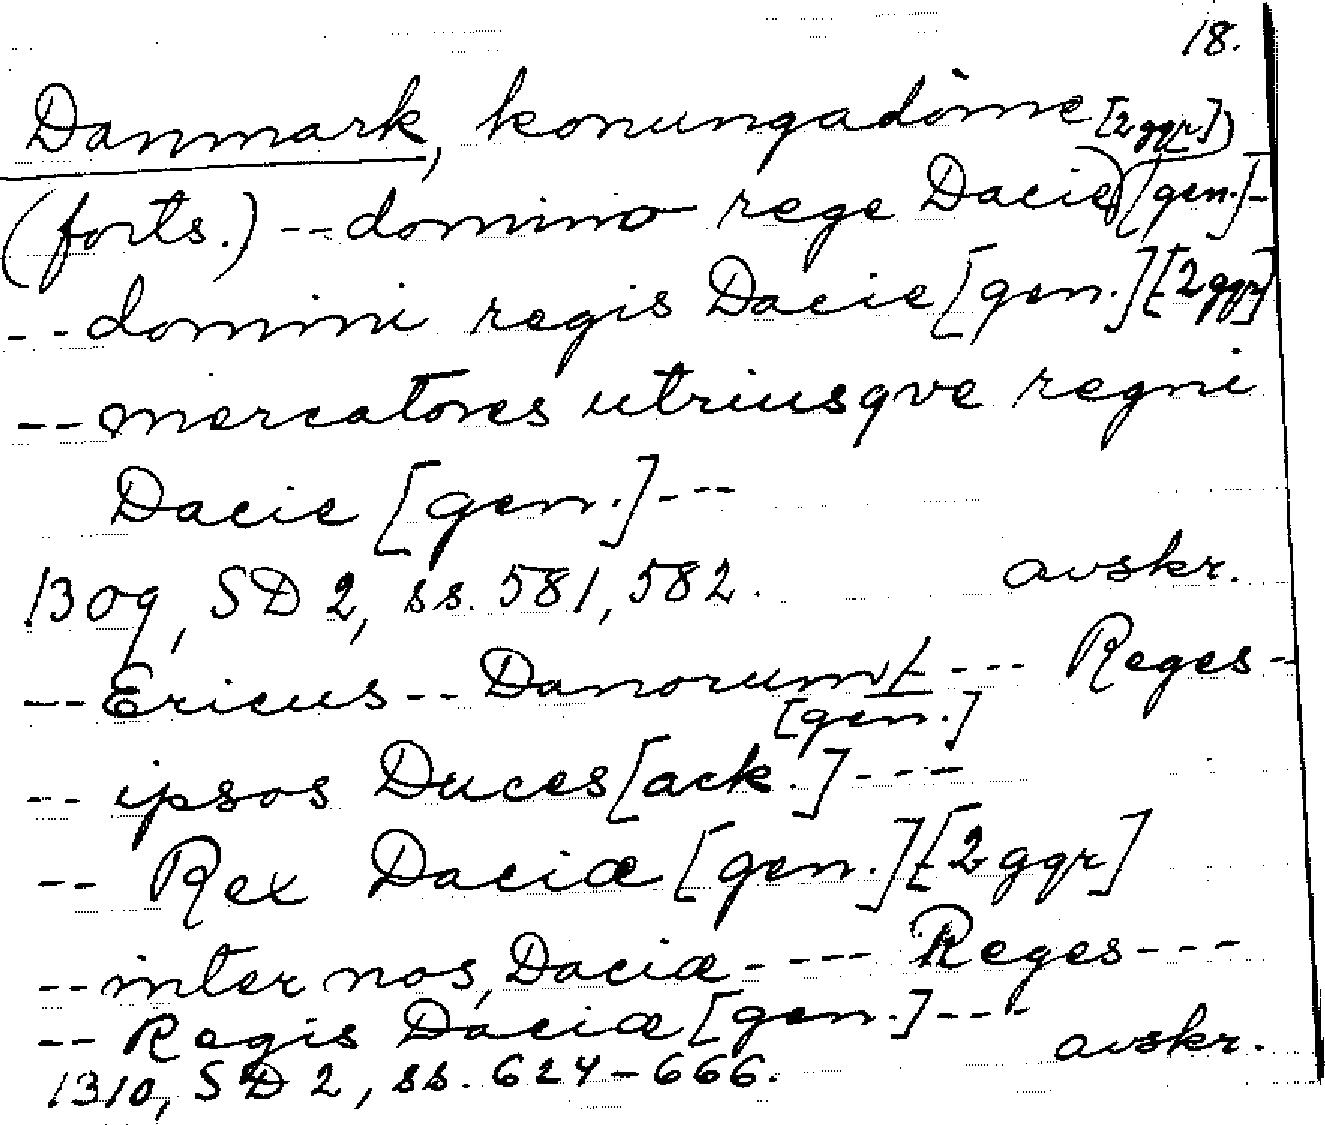 18.
Danmark, konungadöme [2ggr.]
(forts.) -- domino rege Dacie [gen.] -
-- domini regis Dacie [gen.] [2ggr]
-- mercatores utriusqve regni
Dacie [gen.] ---
1309, SD 2, ss. 581, 582. avskr.
-- Ericus -- Danorum --- Reges -
[gen.]
-- ipsos Duces [ack.] ----
-- Rex Daciæ [gen.] [2ggr]
-- inter nos, Daciæ - --- Reges ---
-- Regis Daciæ [gen.] ---
avskr.
1310, SD 2, ss. 624-666.